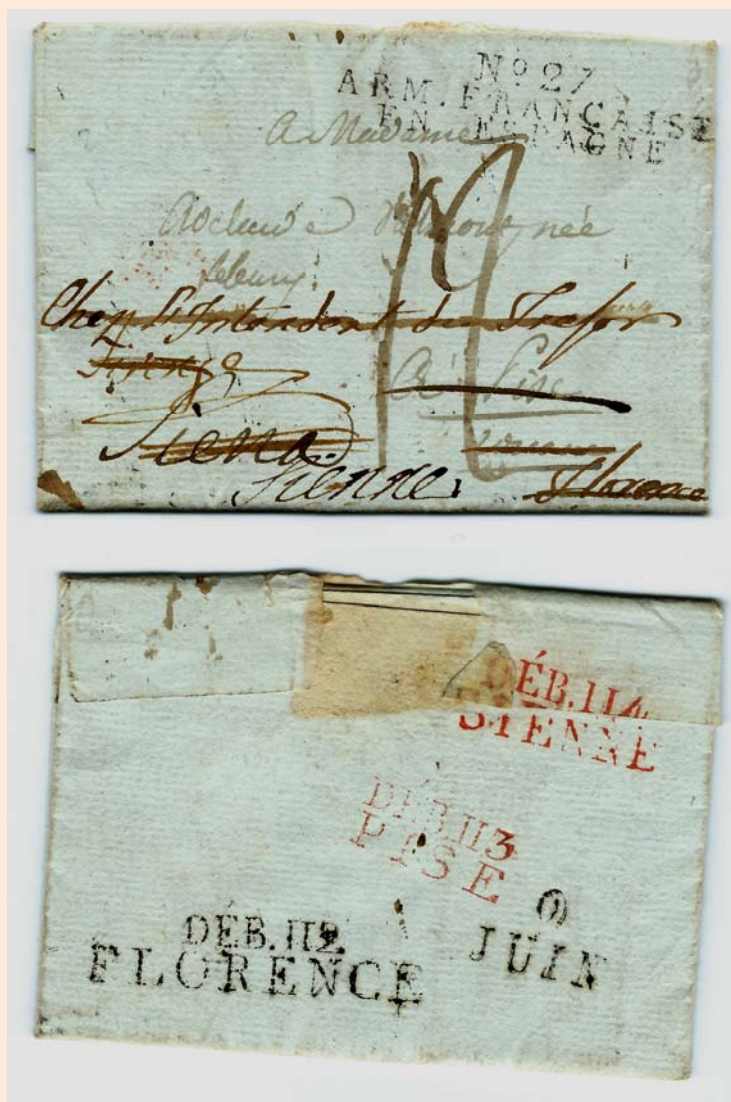 No 27
ARM. FRANÇAISE
EN ESPAGNE
A Madame
née
Chez L'Intendant du Tresor
A Pise
Siena
Sienne
Florence
DÉB. 114
SIENNE
DÉB. 113
PISE
9
JUIN
DÉB. 112
FLORENCE